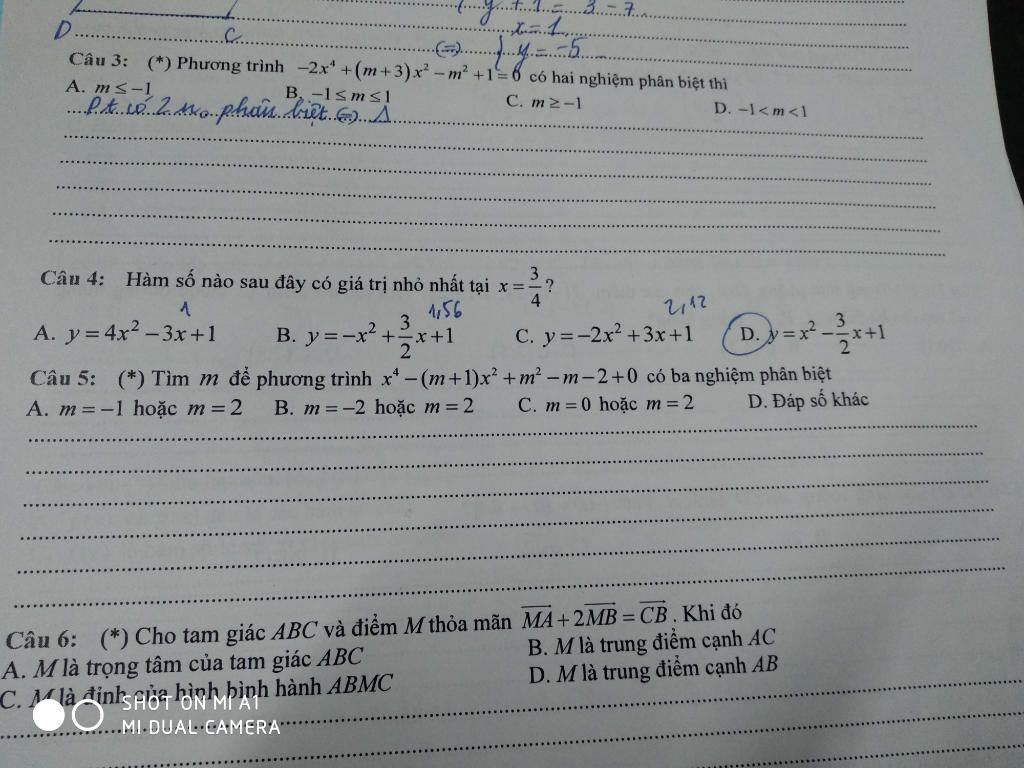 y + 1 = 3 - 7
x = 1
D C (=) { y = -5
Câu 3: (*) Phương trình -2x⁴ + (m+3)x² - m² + 1 = 0 có hai nghiệm phân biệt thì
A. m ≤ -1 B. -1 ≤ m ≤ 1 C. m ≥ -1 D. -1 < m < 1
Pt có 2 no phân biệt (=) Δ
Câu 4: Hàm số nào sau đây có giá trị nhỏ nhất tại x = 3/4?
1 1,56 2,12
A. y = 4x² - 3x + 1 B. y = -x² + 3/2 x + 1 C. y = -2x² + 3x + 1 D. y = x² - 3/2 x + 1
Câu 5: (*) Tìm m để phương trình x⁴ - (m+1)x² + m² - m - 2 + 0 có ba nghiệm phân biệt
A. m = -1 hoặc m = 2 B. m = -2 hoặc m = 2 C. m = 0 hoặc m = 2 D. Đáp số khác
Câu 6: (*) Cho tam giác ABC và điểm M thỏa mãn MA + 2MB = CB. Khi đó
A. M là trọng tâm của tam giác ABC B. M là trung điểm cạnh AC
C. M là đỉnh của hình bình hành ABMC D. M là trung điểm cạnh AB
SHOT ON MI A1
MI DUAL CAMERA